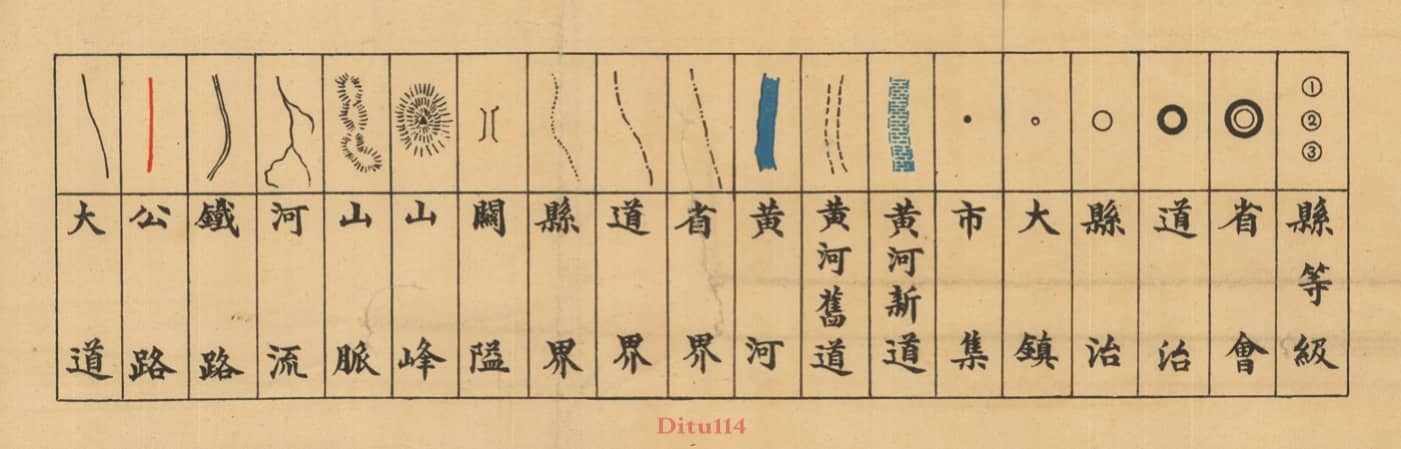 ①
②
③
縣等級
省會
道治
縣治
大鎮
市集
黃河新道
黃河舊道
黃河
省界
道界
縣界
關隘
山峰
山脈
河流
鐵路
公路
大道
Ditu114